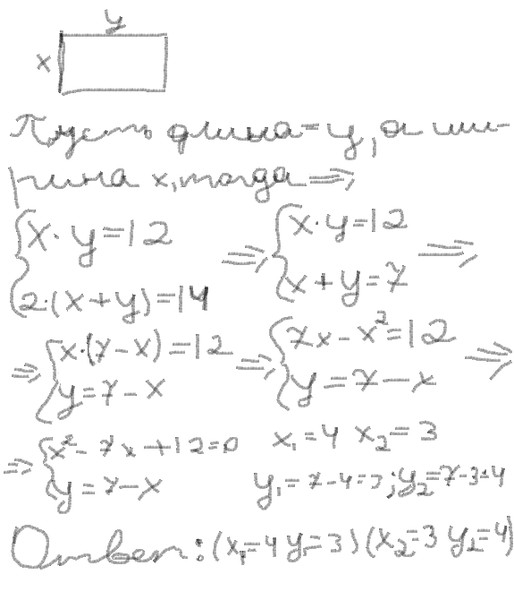 y
x
Пусть длина = y, а ши-
рина x, тогда =>
{ x · y = 12 => { x · y = 12 =>
{ 2 · (x + y) = 14 { x + y = 7
=> { x · (7 - x) = 12 => { 7x - x² = 12 =>
{ y = 7 - x { y = 7 - x
=> { x² - 7x + 12 = 0 x₁ = 4 x₂ = 3
{ y = 7 - x y₁ = 7 - 4 = 3; y₂ = 7 - 3 = 4
Ответ: (x₁ = 4 y₁ = 3) (x₂ = 3 y₂ = 4)